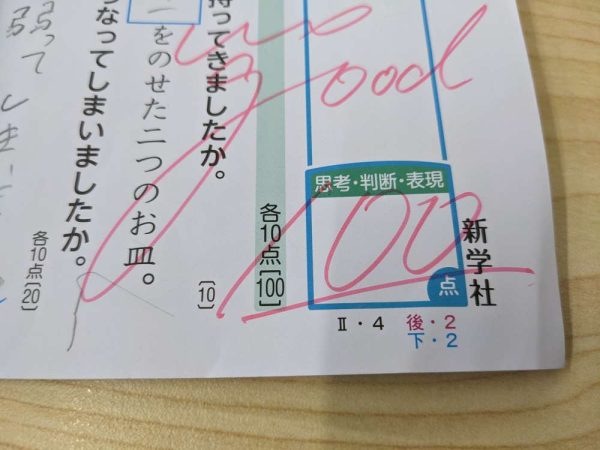 good
思考・判断・表現
100
点
新学社
Ⅱ・4
後・2
下・2
各10点〔100〕
持ってきましたか。
〔10〕
をのせた二つのお皿。
なってしまいましたか。
各10点〔20〕